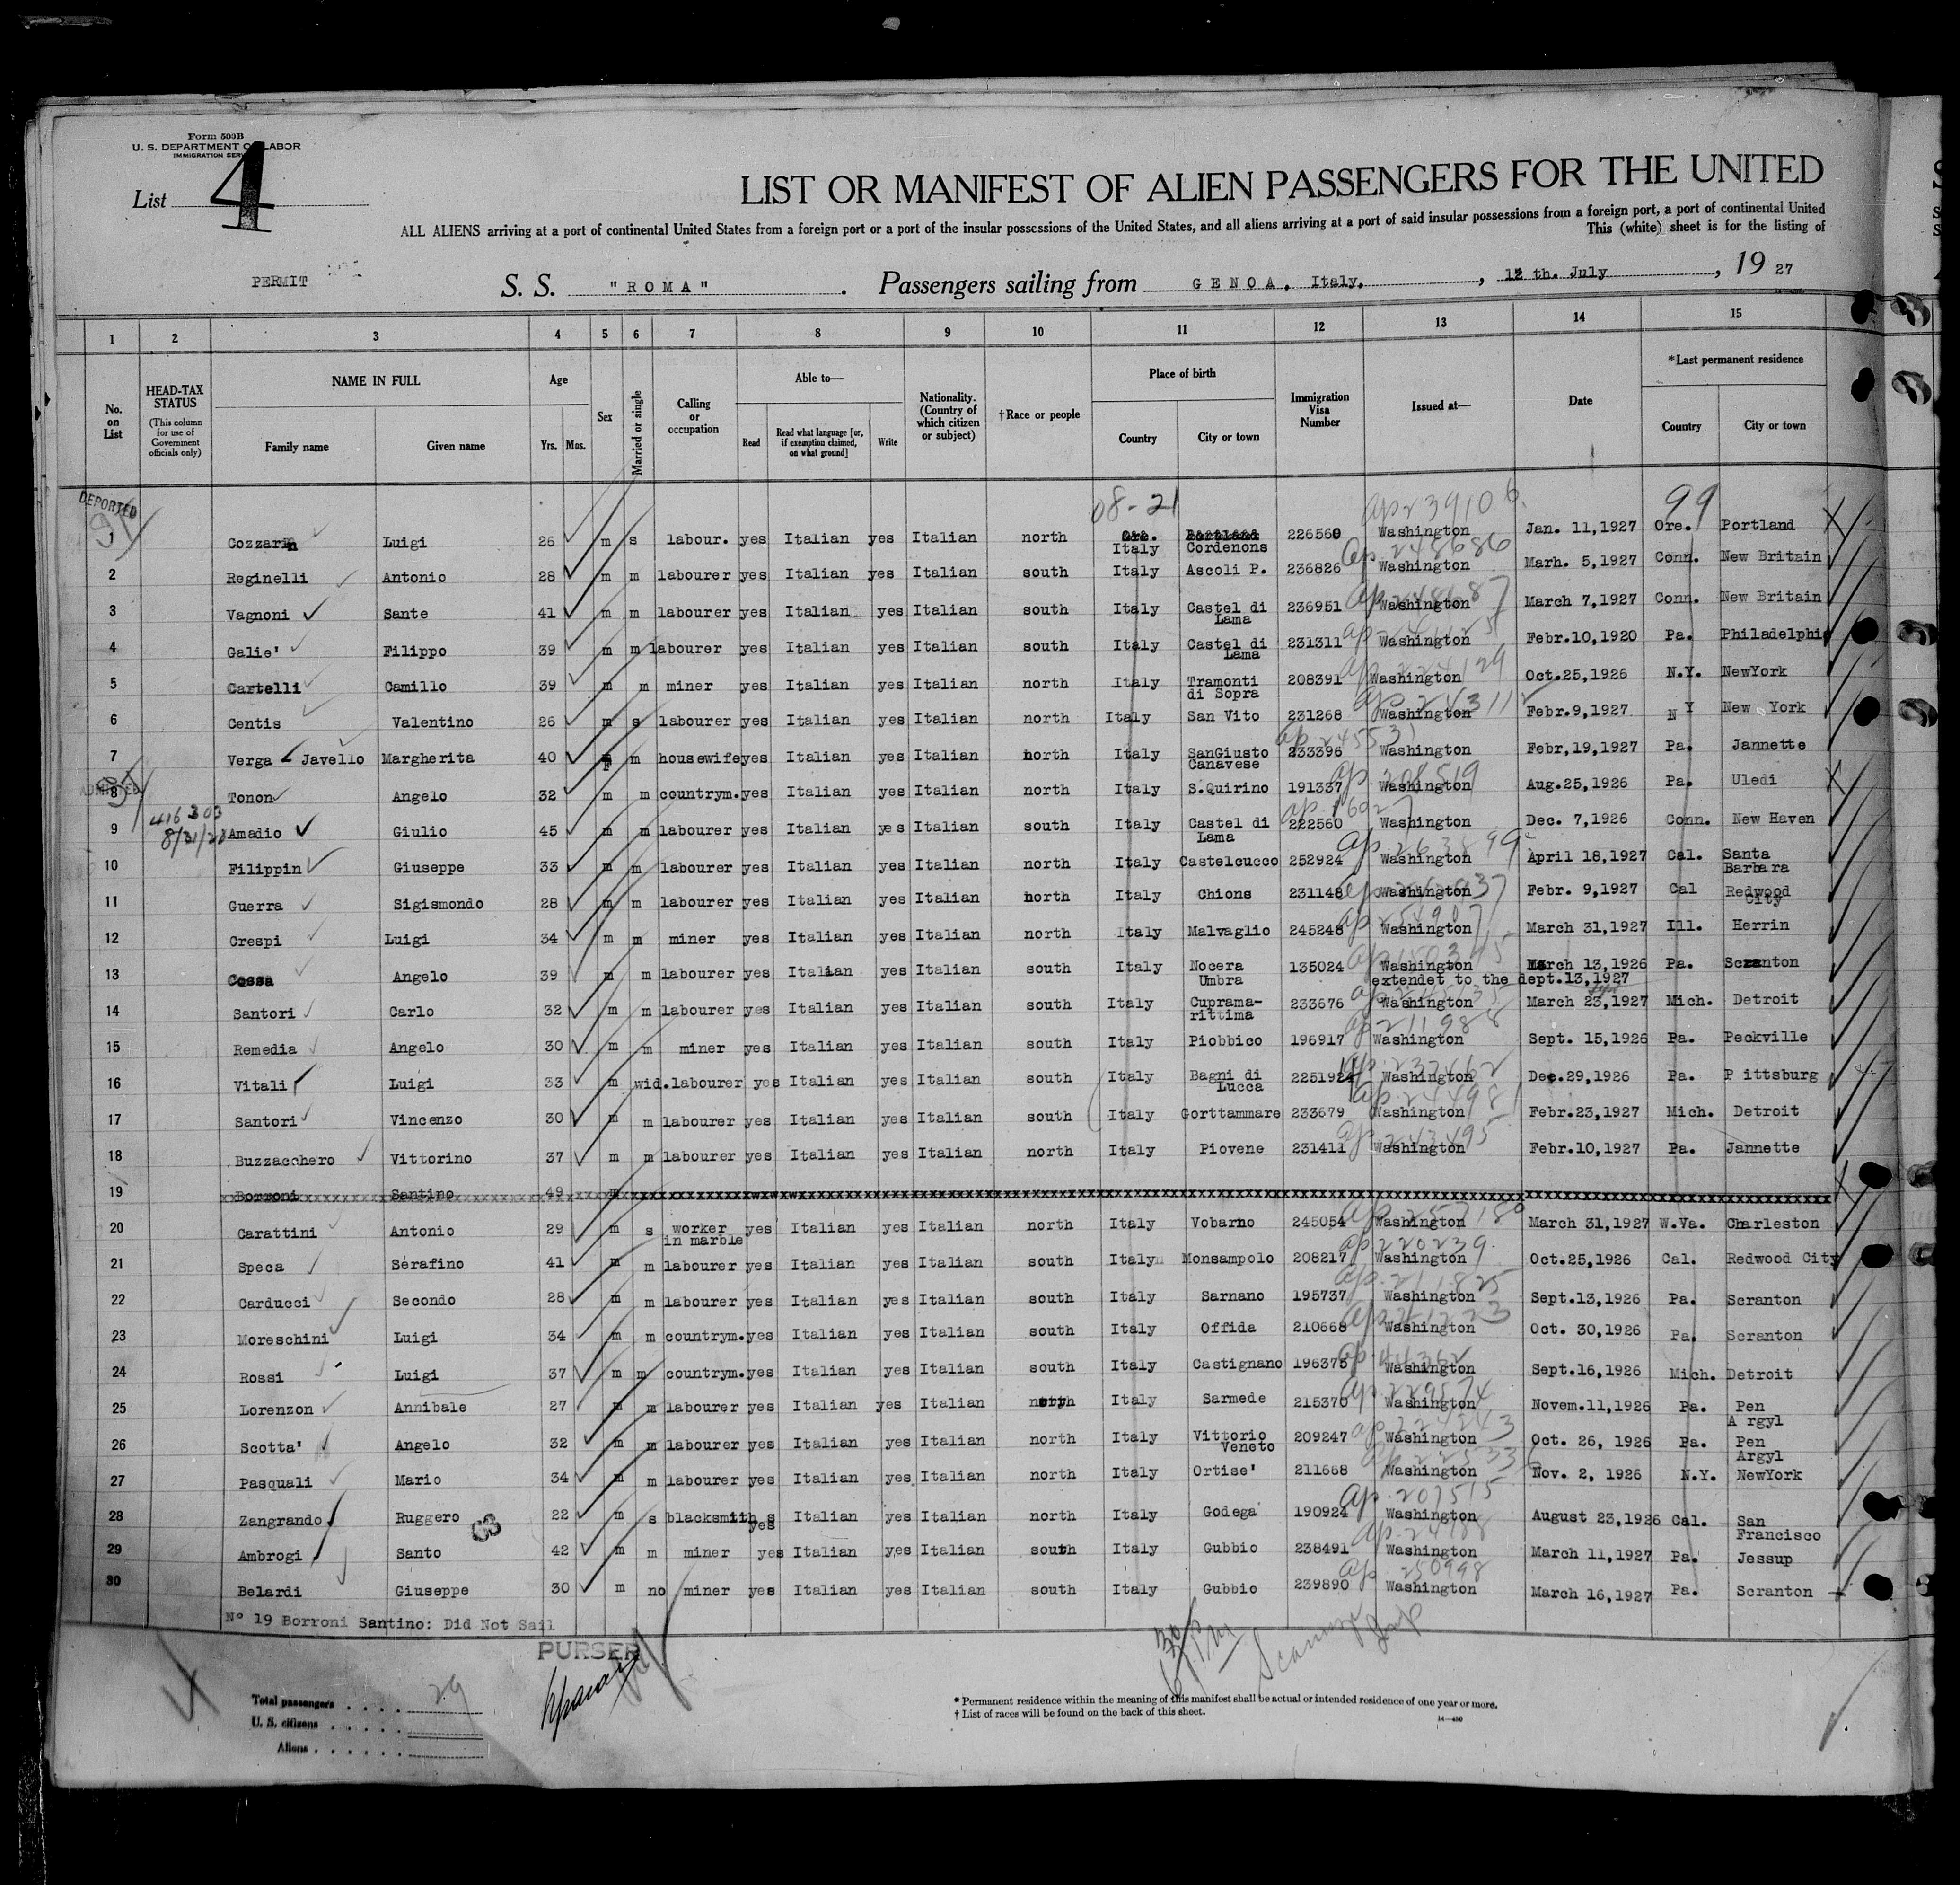 Form 500B
U. S. DEPARTMENT OF LABOR
IMMIGRATION SERVICE
List 4
LIST OR MANIFEST OF ALIEN PASSENGERS FOR THE UNITED
ALL ALIENS arriving at a port of continental United States from a foreign port or a port of the insular possessions of the United States, and all aliens arriving at a port of said insular possessions from a foreign port, a port of continental United
This (white) sheet is for the listing of
PERMIT S. S. "ROMA" . Passengers sailing from GENOA, Italy, , 12 th. July , 19 27
1 2 3 4 5 6 7 8 9 10 11 12 13 14 15
No. on List
HEAD-TAX STATUS (This column for use of Government officials only)
NAME IN FULL Family name Given name
Age Yrs. Mos.
Sex
Married or single
Calling or occupation
Able to— Read Read what language [or, if exemption claimed, on what ground] Write
Nationality. (Country of which citizen or subject)
†Race or people
Place of birth Country City or town
Immigration Visa Number
Issued at—
Date
*Last permanent residence Country City or town
DEPORTED
08-21 ap239106 99
Cozzarin Luigi 26 m s labour. yes Italian yes Italian north Ore. Portland Italy Cordenons 226560 Washington Jan. 11,1927 Ore. Portland
2 Reginelli Antonio 28 m m labourer yes Italian yes Italian south Italy Ascoli P. 236826 ap. 248686 Washington Marh. 5,1927 Conn. New Britain
3 Vagnoni Sante 41 m m labourer yes Italian yes Italian south Italy Castel di Lama 236951 Washington March 7,1927 Conn. New Britain
4 Galie' Filippo 39 m m labourer yes Italian yes Italian south Italy Castel di Lama 231311 Washington Febr.10,1920 Pa. Philadelphia
5 Cartelli Camillo 39 m m miner yes Italian yes Italian north Italy Tramonti di Sopra 208391 Washington Oct.25,1926 N.Y. NewYork
6 Centis Valentino 26 m s labourer yes Italian yes Italian north Italy San Vito 231268 Washington Febr.9,1927 NY New York
7 Verga Javello Margherita 40 F m housewife yes Italian yes Italian north Italy SanGiusto Canavese 233396 Washington Febr,19,1927 Pa. Jannette
8 Tonon Angelo 32 m m countrym. yes Italian yes Italian north Italy S.Quirino 191337 Washington Aug.25,1926 Pa. Uledi
9 Amadio Giulio 45 m m labourer yes Italian yes Italian south Italy Castel di Lama 222560 Washington Dec. 7,1926 Conn. New Haven
10 Filippin Giuseppe 33 m m labourer yes Italian yes Italian north Italy Castelcucco 252924 Washington April 18,1927 Cal. Santa Barbara
11 Guerra Sigismondo 28 m m labourer yes Italian yes Italian north Italy Chions 231148 Washington Febr. 9,1927 Cal Redwood City
12 Crespi Luigi 34 m m miner yes Italian yes Italian north Italy Malvaglio 245248 Washington March 31,1927 Ill. Herrin
13 Cossa Angelo 39 m m labourer yes Italian yes Italian south Italy Nocera Umbra 135024 Washington March 13,1926 Pa. Scranton
extendet to the dept.13,1927
14 Santori Carlo 32 m m labourer yes Italian yes Italian south Italy Cuprama-rittima 233676 Washington March 23,1927 Mich. Detroit
15 Remedia Angelo 30 m m miner yes Italian yes Italian south Italy Piobbico 196917 ap 211988 Washington Sept. 15,1926 Pa. Peckville
16 Vitali Luigi 33 m wid. labourer yes Italian yes Italian south Italy Bagni di Lucca 2251924 ap. 232462 Washington Dec.29,1926 Pa. P ittsburg
17 Santori Vincenzo 30 m m labourer yes Italian yes Italian south Italy Gorttammare 233679 Washington Febr.23,1927 Mich. Detroit
18 Buzzacchero Vittorino 37 m m labourer yes Italian yes Italian north Italy Piovene 231411 ap 243495 Washington Febr.10,1927 Pa. Jannette
19 Borroni Santino 49 m
20 Carattini Antonio 29 m s worker in marble yes Italian yes Italian north Italy Vobarno 245054 Washington March 31,1927 W.Va. Charleston
21 Speca Serafino 41 m m labourer yes Italian yes Italian south Italy Monsampolo 208217 ap 220239 Washington Oct.25,1926 Cal. Redwood City
22 Carducci Secondo 28 m m labourer yes Italian yes Italian south Italy Sarnano 195737 ap. 211825 Washington Sept.13,1926 Pa. Scranton
23 Moreschini Luigi 34 m m countrym. yes Italian yes Italian south Italy Offida 210668 Washington Oct. 30,1926 Pa. Scranton
24 Rossi Luigi 37 m m countrym. yes Italian yes Italian south Italy Castignano 196375 Washington Sept.16,1926 Mich. Detroit
25 Lorenzon Annibale 27 m m labourer yes Italian yes Italian north Italy Sarmede 215370 ap 229574 Washington Novem.11,1926 Pa. Pen A rgyl
26 Scotta' Angelo 32 m m labourer yes Italian yes Italian north Italy Vittorio Veneto 209247 Washington Oct. 26, 1926 Pa. Pen Argyl
27 Pasquali Mario 34 m m labourer yes Italian yes Italian north Italy Ortise' 211668 Washington Nov. 2, 1926 N.Y. NewYork
28 Zangrando Ruggero 22 m s blacksmith yes Italian yes Italian north Italy Godega 190924 ap. 207515 Washington August 23,1926 Cal. San Francisco
29 Ambrogi Santo 42 m m miner yes Italian yes Italian south Italy Gubbio 238491 Washington March 11,1927 Pa. Jessup
30 Belardi Giuseppe 30 m no miner yes Italian yes Italian south Italy Gubbio 239890 ap 250998 Washington March 16,1927 Pa. Scranton
N° 19 Borroni Santino: Did Not Sail
PURSER
Total passengers . . . . 29
U. S. citizens . . . . .
Aliens . . . . . .
* Permanent residence within the meaning of this manifest shall be actual or intended residence of one year or more.
† List of races will be found on the back of this sheet.